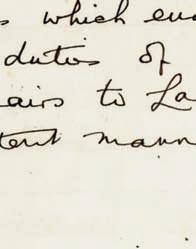 s which ena
duties of
airs to La
tent mann